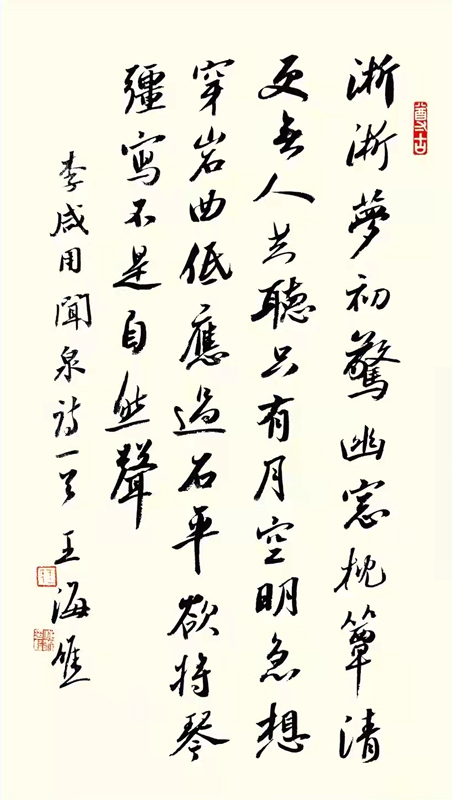 淅淅夢初驚幽窓枕簟清
更無人共聽只有月空明急想
穿岩曲低應過石平欲將琴
彊寫不是自然聲
李咸用聞泉詩一首 王海